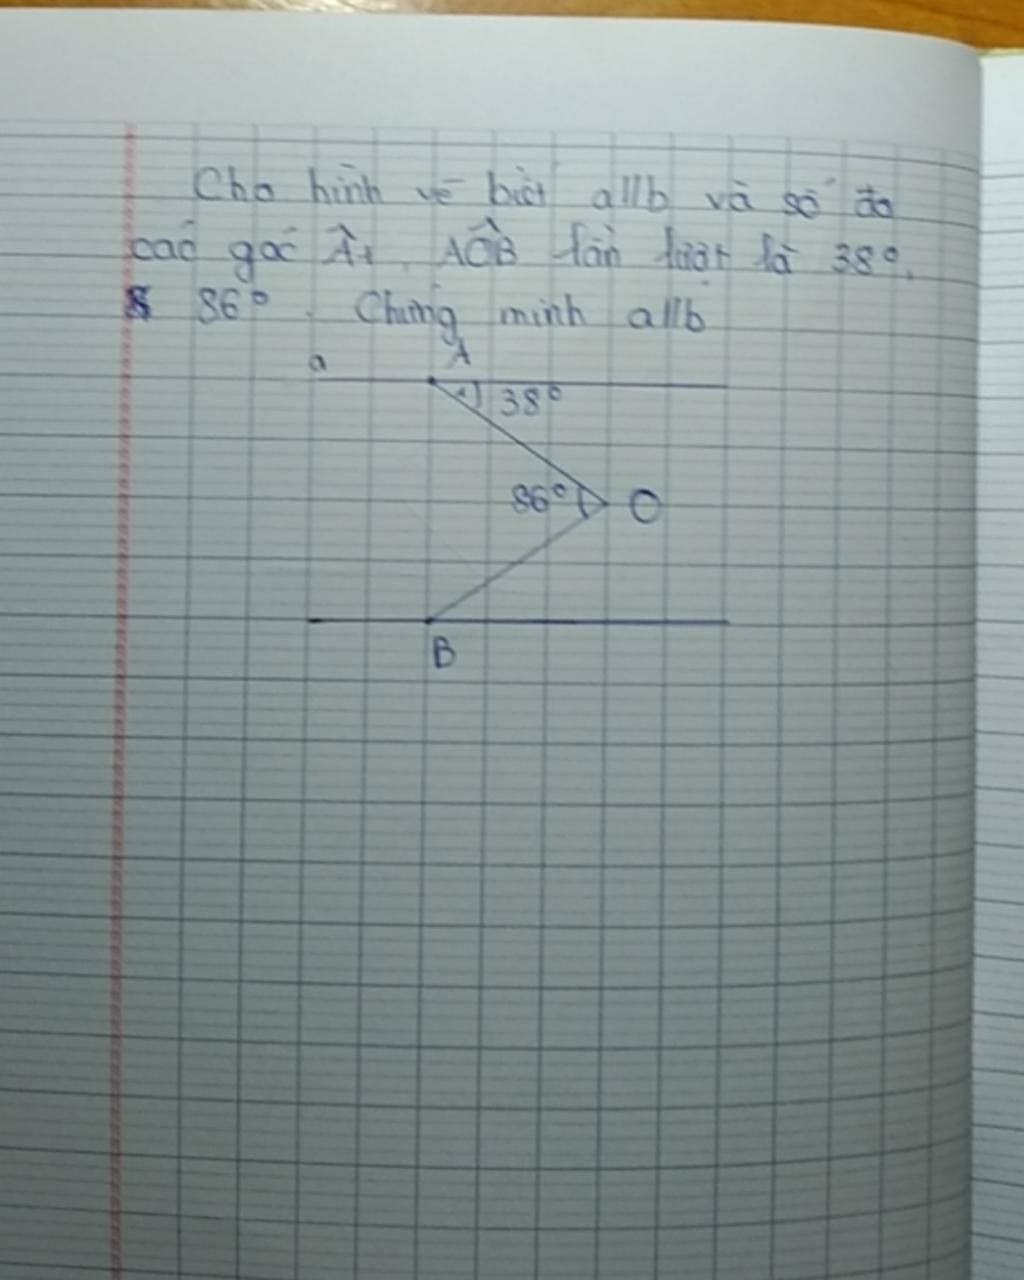 Cho hình vẽ biết a//b và số đo
các góc Â1, AÔB lần lượt là 38°,
86°. Chứng minh a//b
a A
1 38°
86° O
B